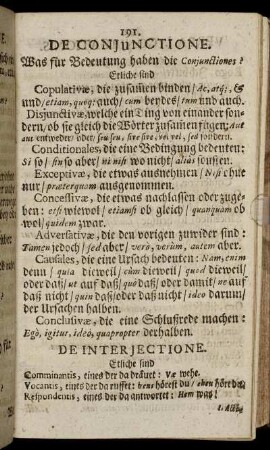 191.
DE CONJUNCTIONE.
Was für Bedeutung haben die Conjunctiones?
Etliche sind
Copulativæ, die zusamen binden / Ac, atq;, &
und / etiam, quoq; auch / cum beydes / tum und auch.
Disjunctivæ, welche ein Ding von einander son-
dern / ob sie gleich die Wörter zusamen fügen; Aut
aut entweder oder / seu seu, sive sive, vè vel, sed sondern.
Conditionales, die eine Bedingung bedeuten:
Si so / sin so aber / ni nisi wo nicht / aliàs sonsten.
Exceptivæ, die etwas ausnehmen / Nisi ohne
nur / præterquam ausgenommen.
Concessivæ, die etwas nachlassen oder zuge-
ben: etsi wiewol / etiamsi ob gleich / quanquam ob
wol / quidem zwar.
Adversativæ, die den vorigen zuwider sind:
Tamen jedoch / sed aber / verò, verùm, autem aber.
Causales, die eine Ursach bedeuten: Nam, enim
denn / quia dieweil / cùm dieweil / quod dieweil /
oder daß / ut auf daß / quò daß / oder damit / ne auf
daß nicht / quin daß / oder daß nicht / ideo darum /
der Ursachen halben.
Conclusivæ, die eine Schlußrede machen:
Ergò, igitur, ideò, quapropter derhalben.
DE INTERJECTIONE.
Etliche sind
Comminantis, eines der da dräuet: Væ wehe.
Vocantis, eines der da ruffet: heus hörest du / ehem hört doch
Respondentis, eines der da antwortet: Hem was!